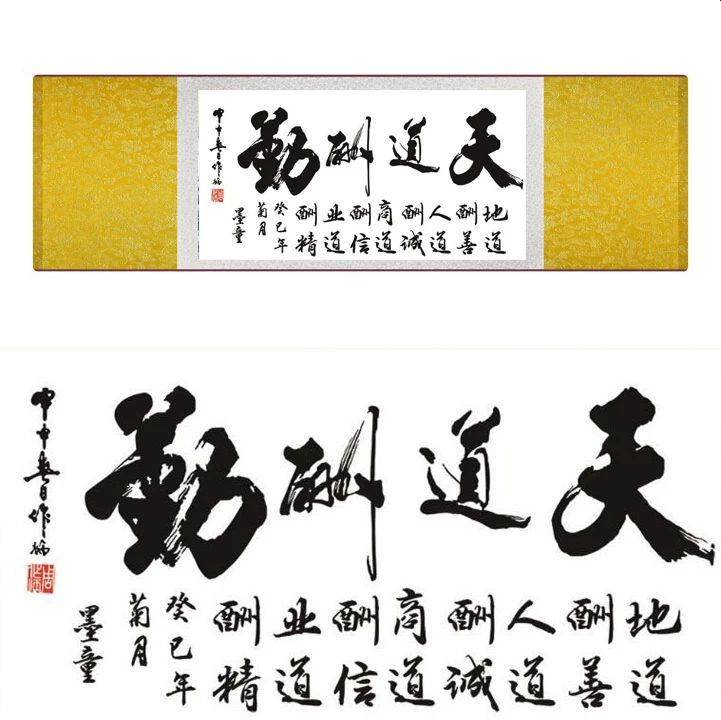 天道酬勤
甲申春日作
地道
酬善
人道
酬诚
商道
酬信
业道
酬精
癸巳年
菊月
墨童
天道酬勤
甲申春日作
地道
酬善
人道
酬诚
商道
酬信
业道
酬精
癸巳年
菊月
墨童